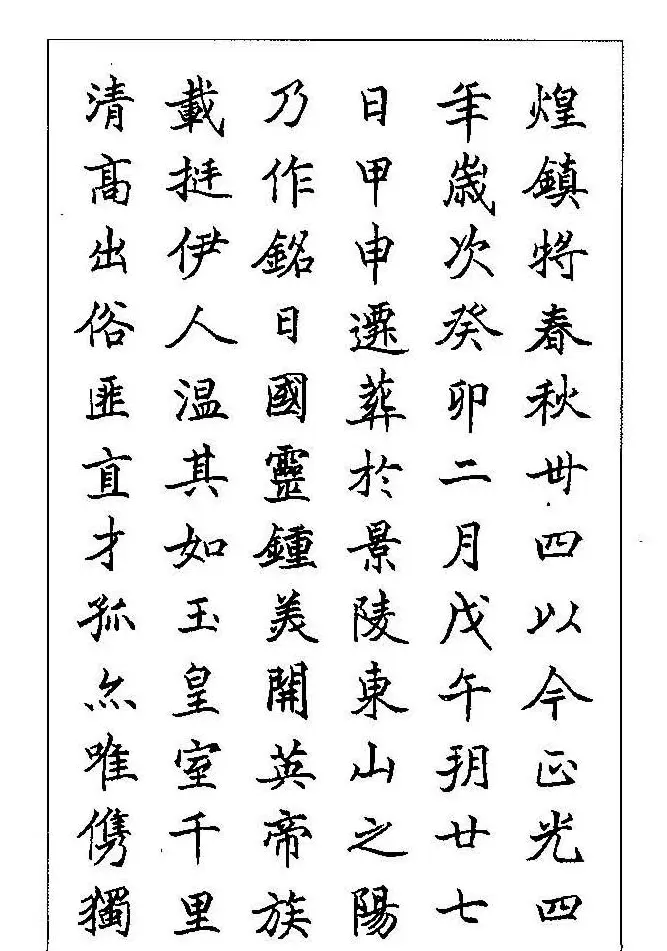 煌鎮將春秋卅四以今正光四
年歲次癸卯二月戊午玥廿七
日甲申遷葬於景陵東山之陽
乃作銘曰國靈鍾美開英帝族
載挺伊人温其如玉皇室千里
清髙出俗匪直才孤亦唯儁獨